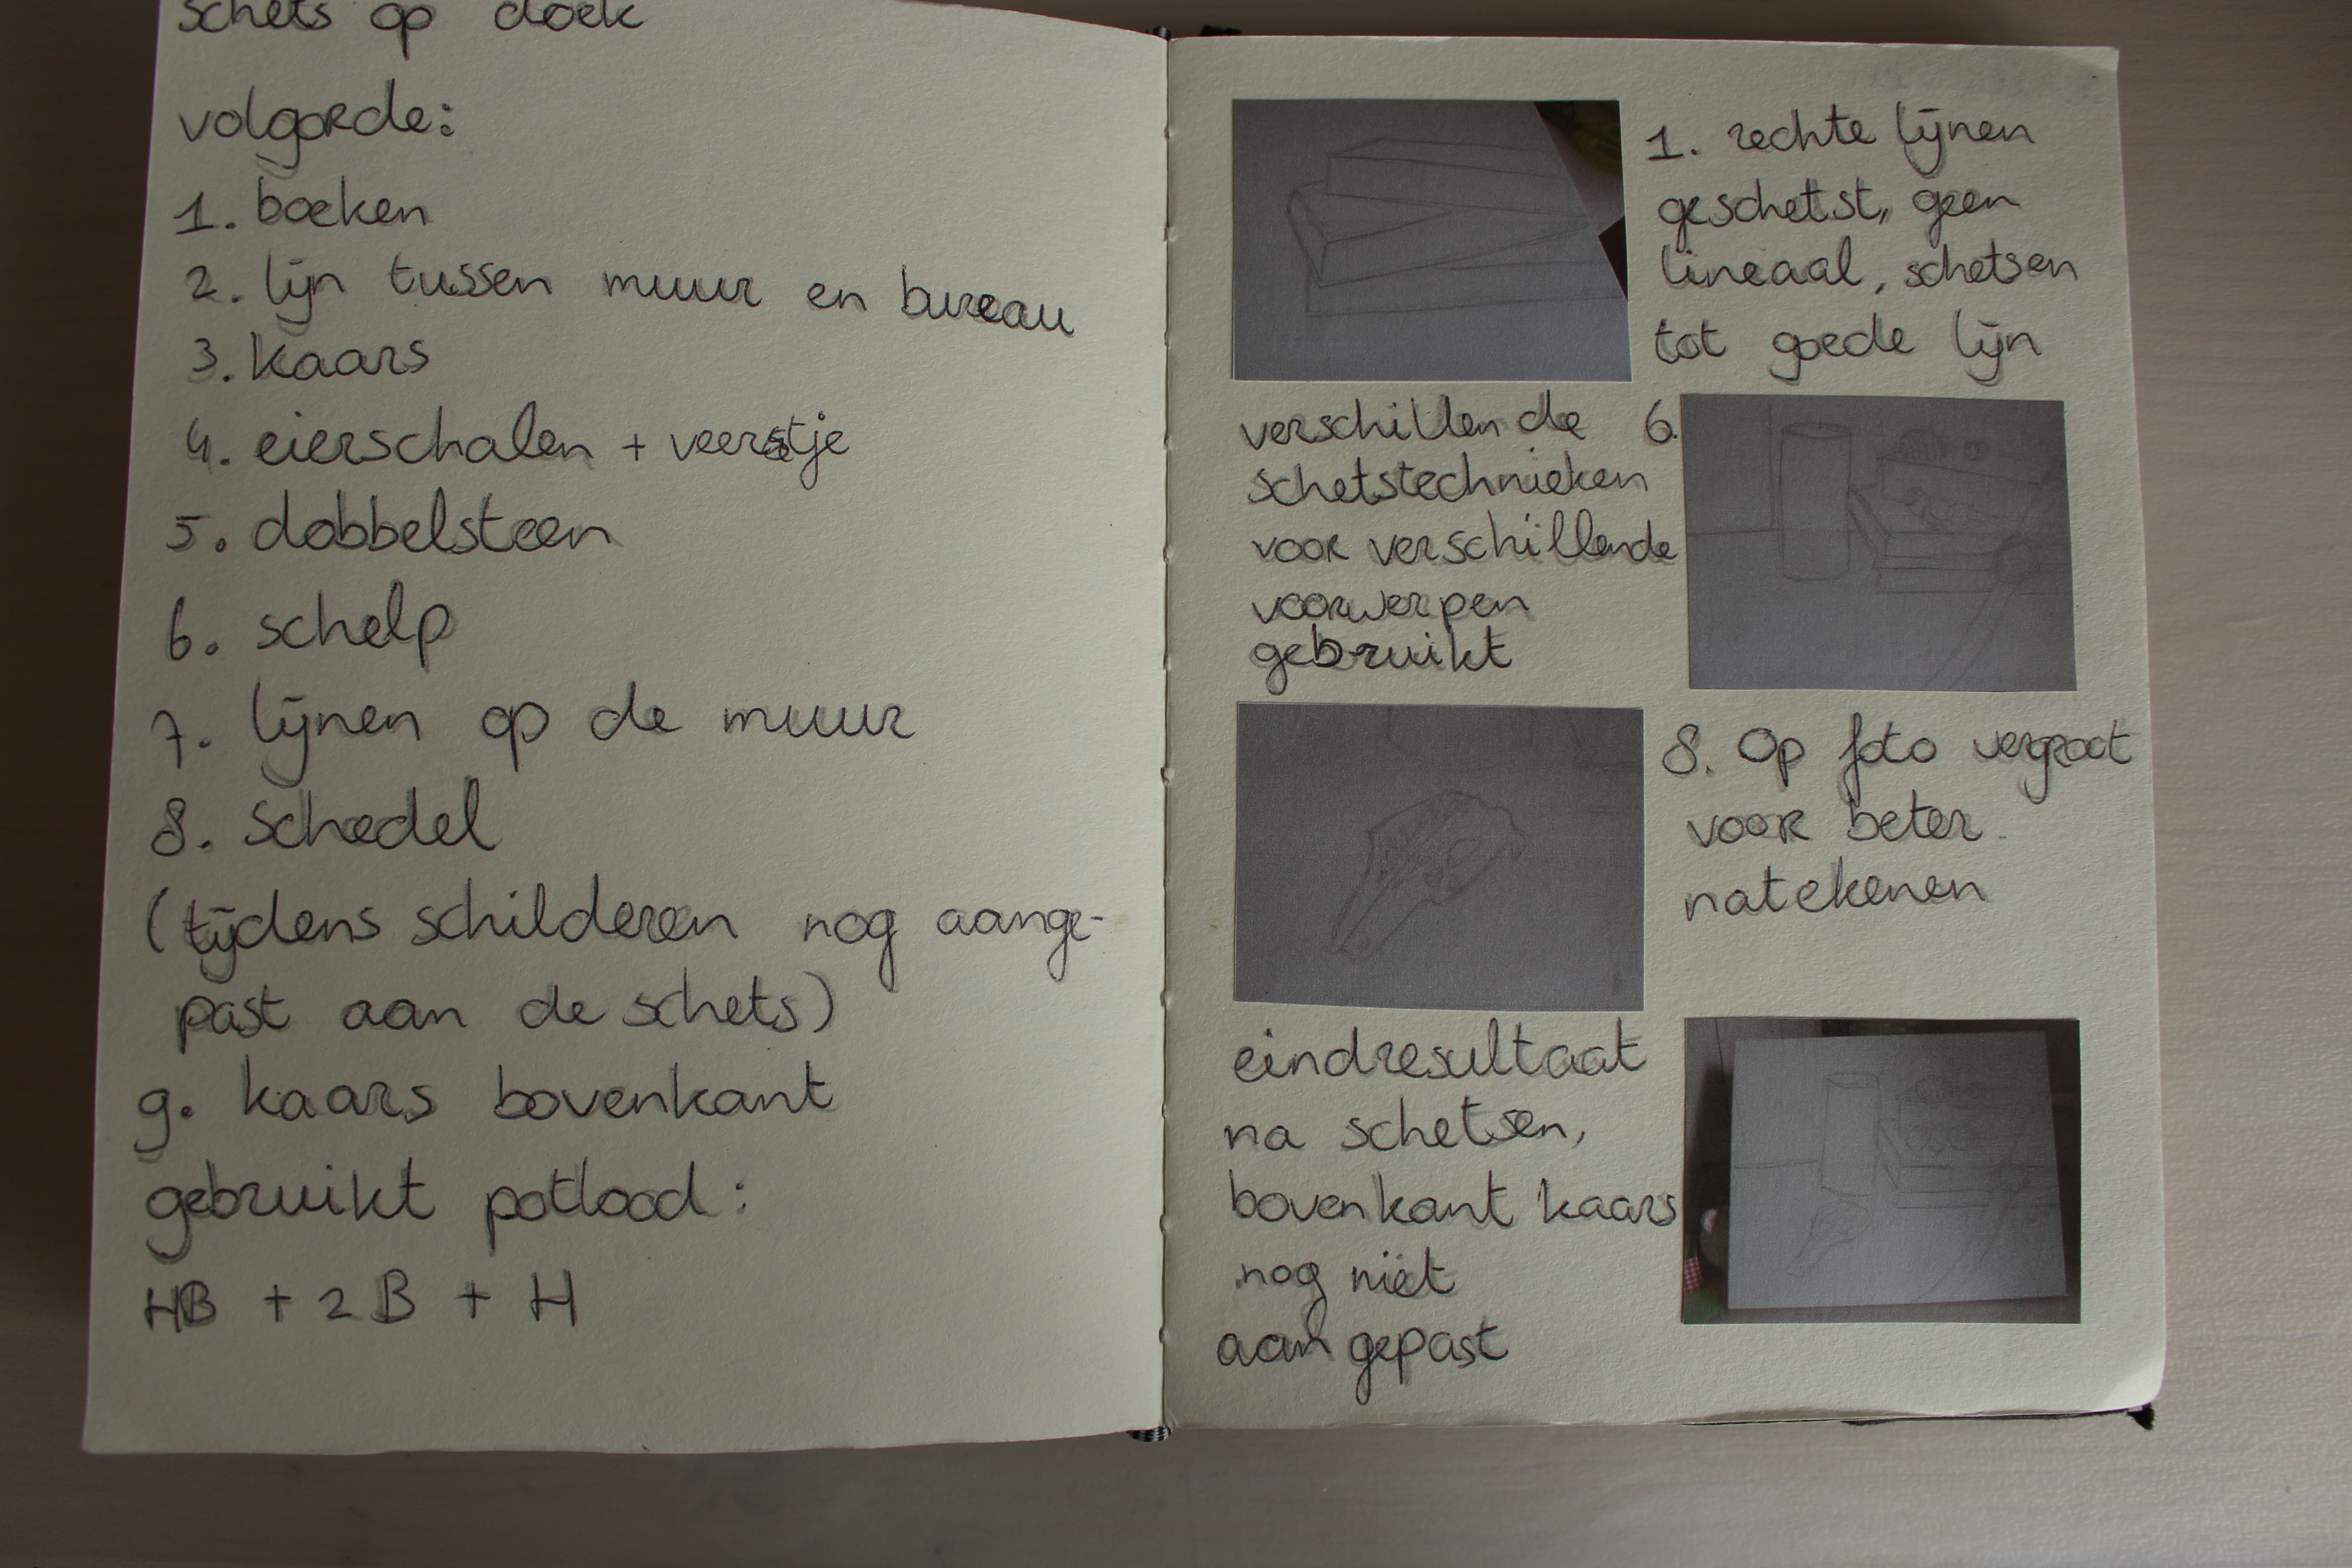 schets op doek
volgorde:
1. boeken
2. lijn tussen muur en bureau
3. kaars
4. eierschalen + veerstje
5. dobbelsteen
6. schelp
7. lijnen op de muur
8. schedel
(tijdens schilderen nog aange-
past aan de schets)
9. kaars bovenkant
gebruikt potlood:
HB + 2B + H
1. rechte lijnen
geschetst, geen
lineaal, schetsen
tot goede lijn
verschillende 6.
schetstechnieken
voor verschillende
voorwerpen
gebruikt
8. Op foto vergroot
voor beter
natekenen
eindresultaat
na schetsen,
bovenkant kaars
nog niet
aangepast